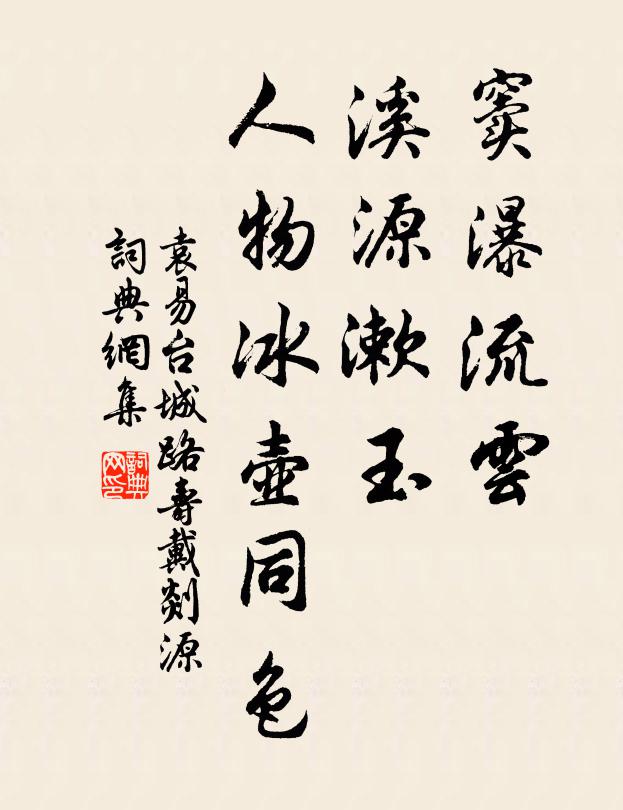 窦瀑流雲
溪源漱玉
人物冰壺同色
袁易台城路壽戴剡源
詞典網集
詞典網印